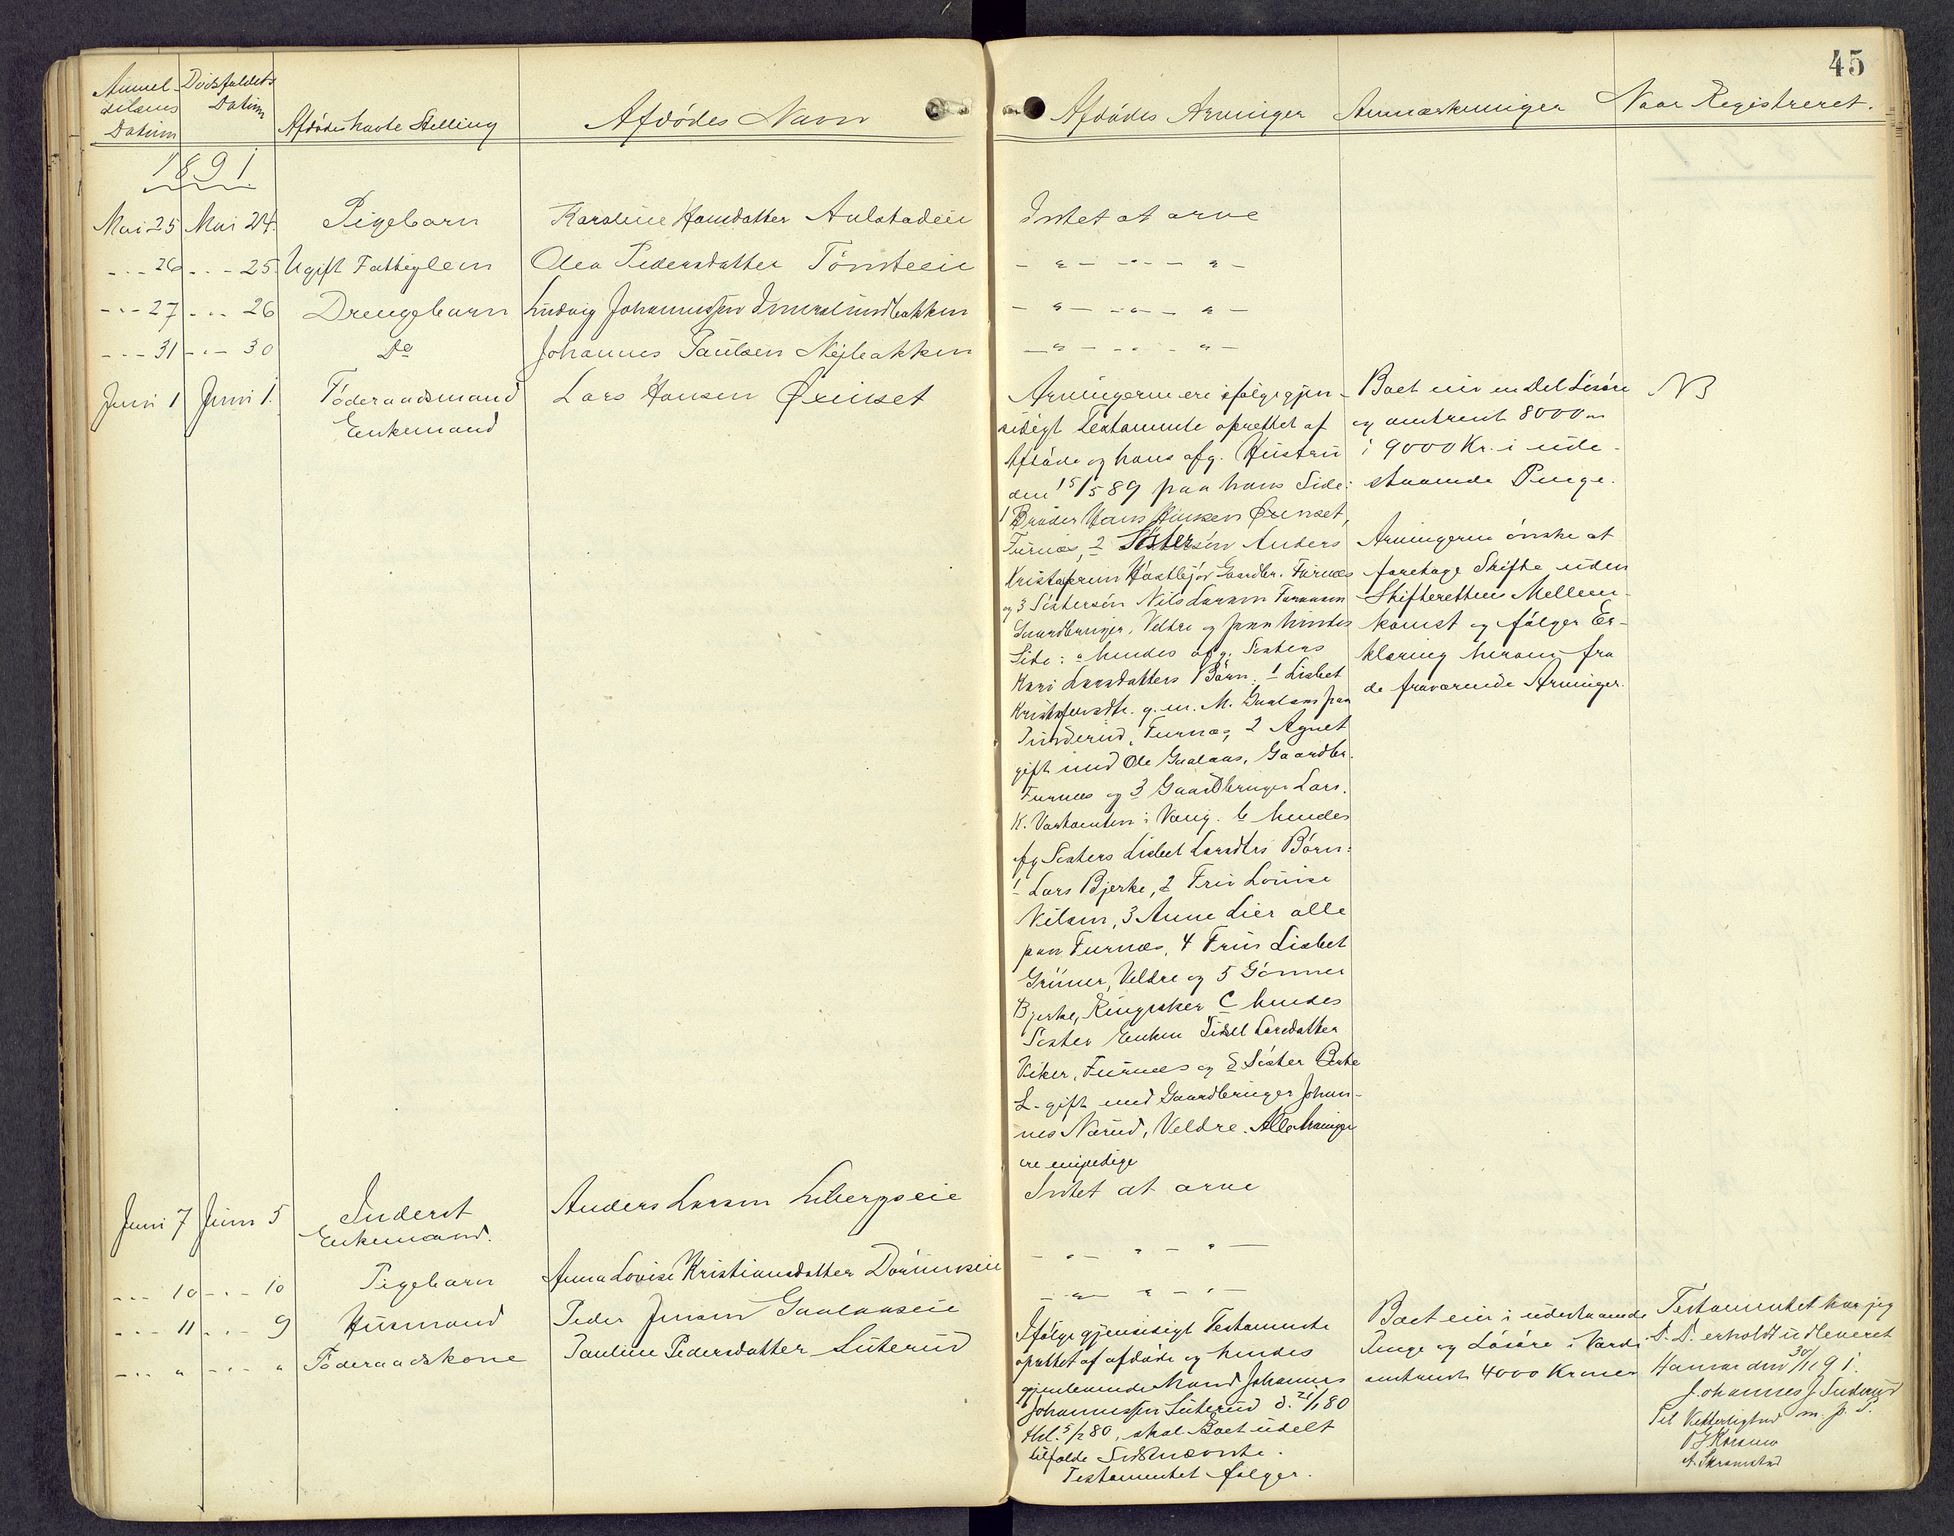 45
Anmeldelsens Datum
Dødsfaldets Datum
Afdødes havte Stilling
Afdødes Navn
Afdødes Arvinger
Anmærkninger
Naar Registreret.
1891
Mai 25 Mai 24. Pigebarn Karoline Hansdatter Aulstadeie Intet at arve
- - - 26 - - - 25 Ugift Fattiglem Olea Pedersdatter Tømteeie - " - - " - - " -
- - - 27 - - - 26 Drengebarn Ludvig Johannessen Immerslundbakken - " - - " - - " -
- - - 31 - - - 30 Do Johannes Paulsen Nejbakken - " - - - - " -
Juni 1 Juni 1. Føderaadsmand Lars Hansen Øxeset
Enkemand
Arvingerne ere ifølge gjen-
sidigt Testamente oprettet af
Afdøde og hans afg. Hustru
den 15/5 89 paa hans Side:
1 Broder Hans Hansen Øxeset,
Furnæs, 2 Søstersøn Anders
Kristofersen Gaardbr. Furnæs
og 3 Søstersøn Nils Larsen
Gaardbruger, Veldre og paa hindes
Side: a hendes afg. Søsters
Kari Larsdatters Børn: 1 Lisbet
Kristofersdtr. g. m. M. Gaalaas paa
Furnæs, 2 Agnet
gift med Ole Gaalaas, Gaardbr.
Furnæs og 3 Gaardbruger Lars
K. i Vang. b hendes
afg Søsters Lisbet Larsdtrs Børn:
1 Lars Bjerke, 2 Fru Louise
3 Anne Lier alle
paa Furnæs, 4 Frue Lisbet
Grüner, Veldre og 5 Gunner
Bjerke, Ringsaker C hendes
Søster Enken Sidsel Larsdatter
Viker, Furnæs og D Søster
L. gift med Gaardbruger Johan-
nes Nærud, Veldre. Alle Arvinger
ere myndige
Boet eier en Del Løsøre
og omtrent 8000 a
i 9000 Kr. i ude-
staaende Penge.
Arvingerne ønske at
foretage Skifte uden
Skifterettens Mellem-
komst og følger Er-
klæring herom fra
de fraværende Arvinger.
NB
Juni 7 Juni 5 Inderst Anders Larsen Libergseie Intet at arve
Enkemand.
- - - 10 - - - 10 Pigebarn Anna Lovise Kristiansdatter - " - " - " -
- - - 11 - - - 9 Husmand Peder Jensen Gaalaaseie - " - " - " -
- - - " - - - " Føderaadskone Pauline Pedersdatter Suterud
Ifølge gjensidigt Testamente
oprettet af afdøde og hendes
gjenlevende Mand Johannes
Johannessen Suterud d. 21/1 80
thl. 5/2 80, skal Boet udelt
tilfalde Sidstnævnte.
Testamentet følger.
Boet eier i udestaaende
Penge og Løsøre i Værdi
omtrent 4000 Kroner
Testamentet har jeg
D. D. erholdt udleveret
Hamar den 30/11 91.
Johannes J Suterud
m. p. P.
Til Vitterlighed
A. Skramstad